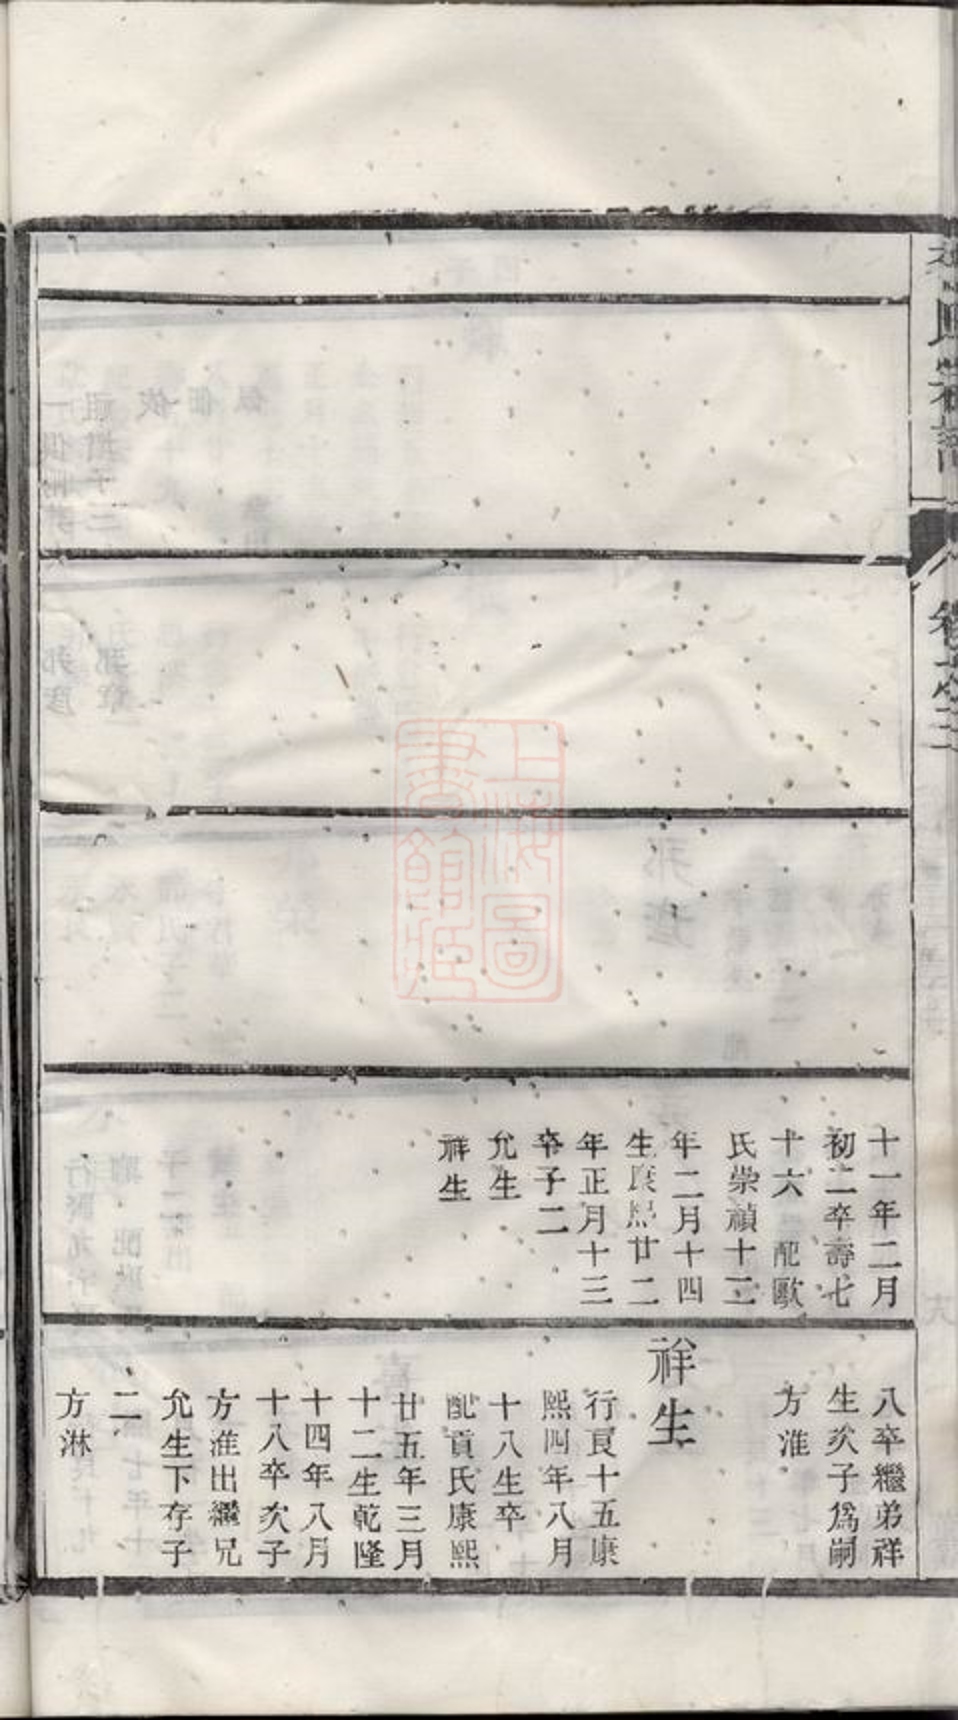 十一年二月
初二卒壽七
十六 配歐
氏崇禎十二
年二月十四
生康熙廿二
年正月十三
卒子二
允生
祥生
八卒繼弟祥
生次子為嗣
方淮
祥生
行良十五康
熙四年八月
十八生卒
配貢氏康熙
廿五年三月
十二生乾隆
十四年八月
十八卒次子
方淮出繼兄
允生下存子
二
方淋
上海圖
書館藏